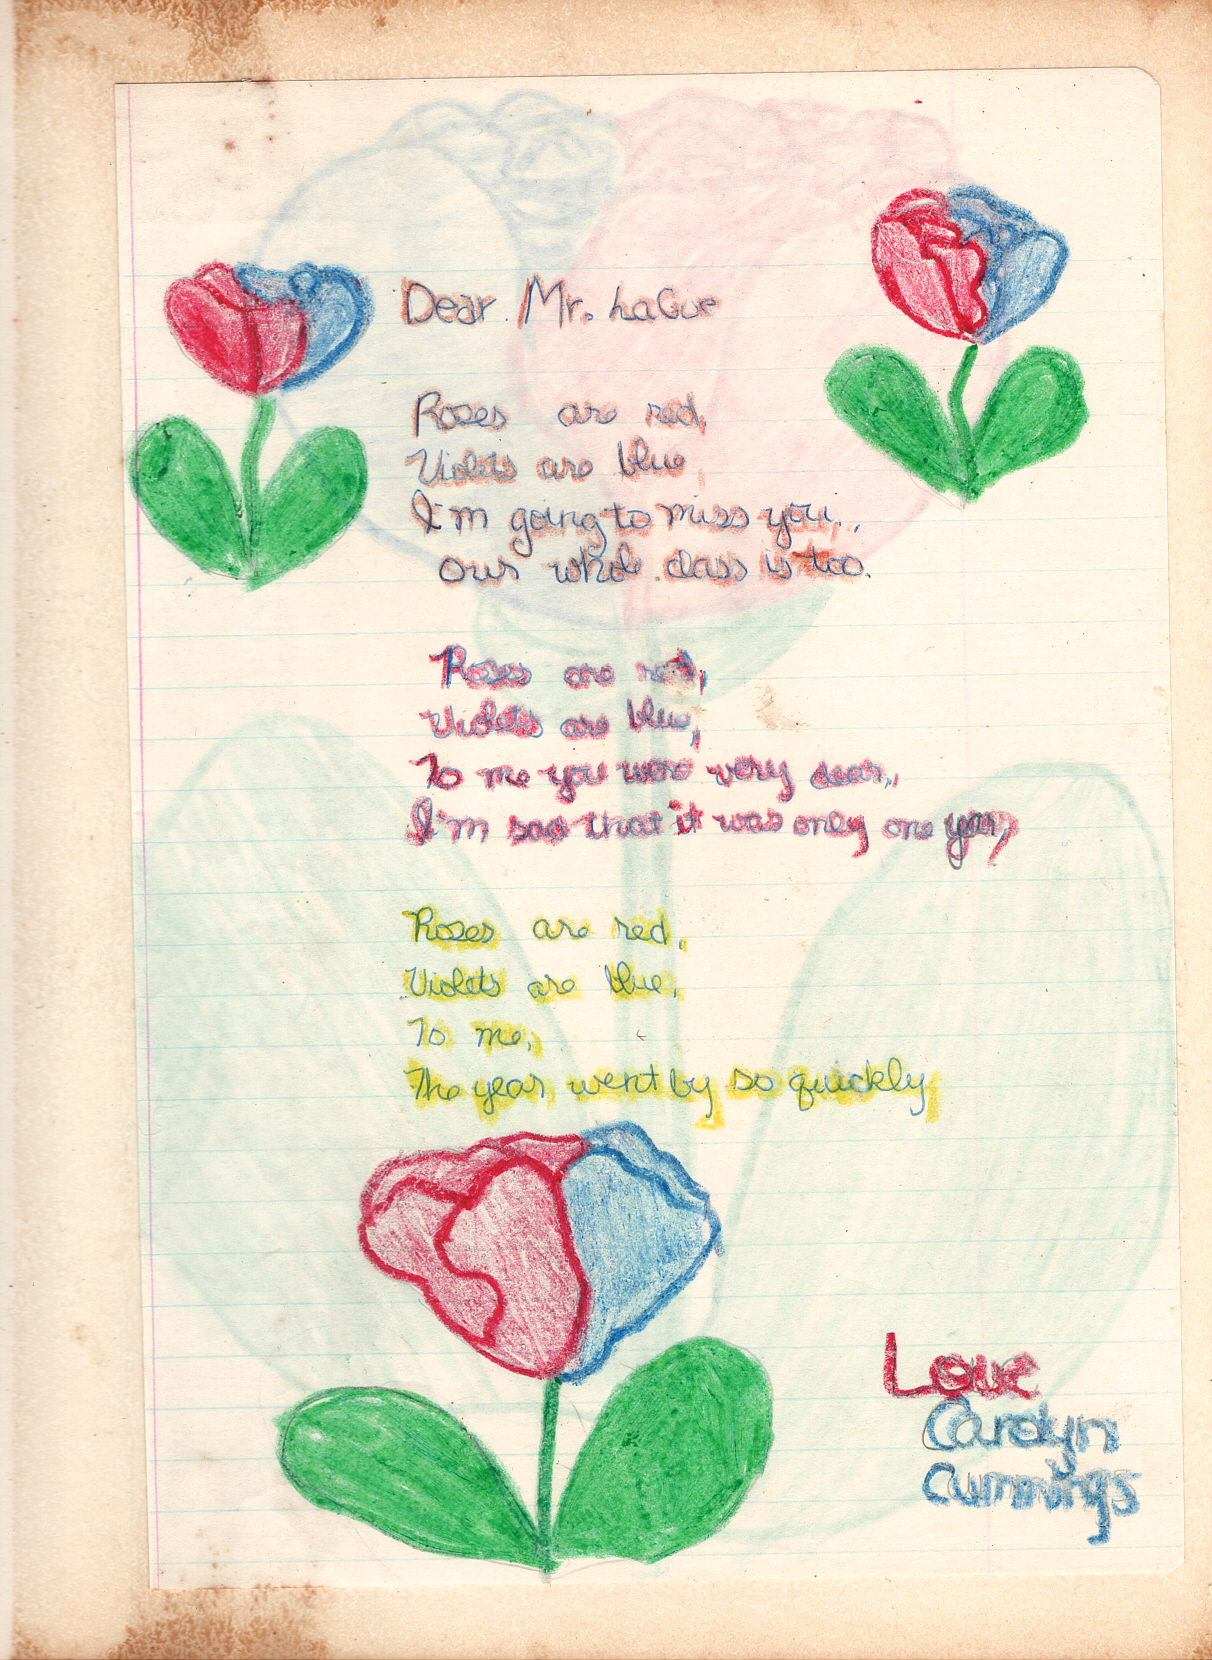 Dear Mr. LaGue
Roses are red,
Violets are blue,
I'm going to miss you,,
our whole class is too.
Roses are red,
Violets are blue,
To me you were very dear,,
I'm sad that it was only one year,
Roses are red,
Violets are blue,
To me,
The year went by so quickly,
Love
Carolyn
Cummings